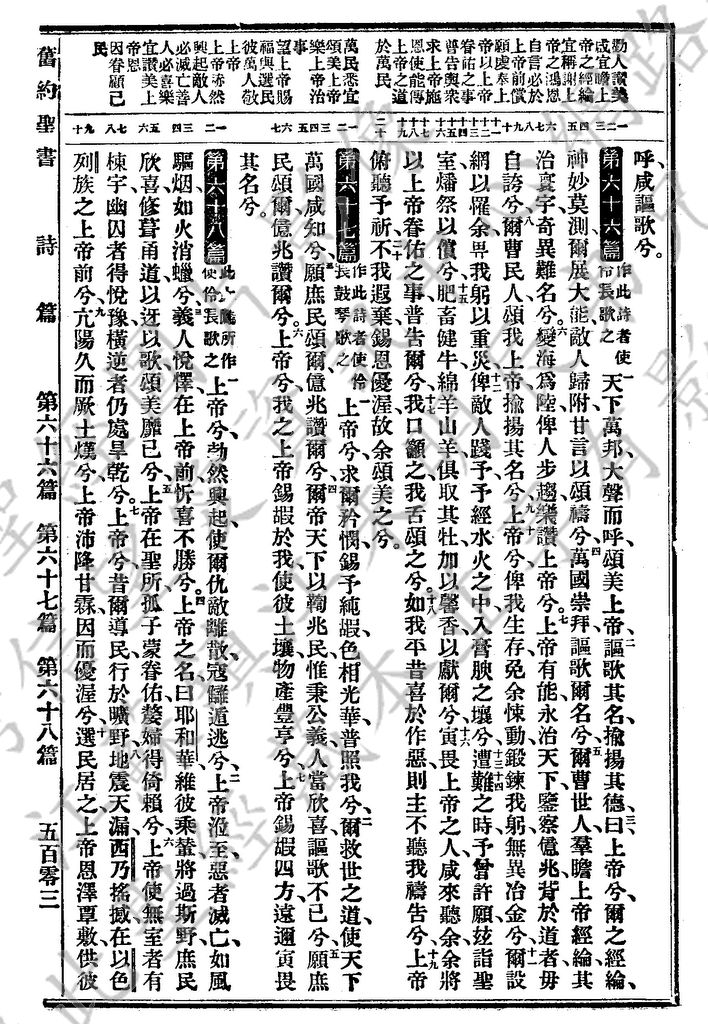 舊約聖書 詩篇 第六十六篇 第六十七篇 第六十八篇 五百零三
勸人讚美
咸宜瞻上
帝之經綸
宜稱謝上
帝之鴻恩
自言必於
上帝前償
願虔奉上
帝以上帝
眷佑之事
普告與衆
求上帝施
恩使能傳
上帝之道
於萬民
萬民悉宜
頌美上帝
樂上帝治
事
望上帝賜
福與選民
彼萬人敬
上帝
上帝赫然
興起敵人
必滅亡善
人必喜樂
宜讚美上
帝恩
因眷顧已
民
呼、咸謳歌兮。
第六十六篇 作此詩者使伶長歌之 一天下萬邦大聲而呼、頌美上帝、二謳歌其名、揄揚其德、三曰、上帝兮、爾之經綸、
神妙莫測、爾展大能、敵人歸附、甘言以頌禱兮、四萬國崇拜、謳歌爾名兮、五爾曹世人、羣瞻上帝經綸、其
治寰宇、奇異難名兮、六變海爲陸、俾人步趨、樂讚上帝兮、七上帝有能、永治天下、鑒察億兆、背於道者、毋
自誇兮、八爾曹民人、頌我上帝、揄揚其名兮、九上帝兮、俾我生存、免余悚動、十鍛鍊我躬、無異冶金兮、十一爾設
網以罹余、畀我躬以重災、十二俾敵人踐予、予經水火之中、入膏腴之壤兮、十三十四遭難之時、予曾許願、玆詣聖
室、燔祭以償兮、十五肥畜健牛、綿羊山羊、俱取其牡、加以馨香、以獻爾兮、十六寅畏上帝之人、咸來聽余、余將
以上帝眷佑之事、普告爾兮、十七我口籲之、我舌頌之兮。十八如我平昔喜於作惡、則主不聽我禱告兮、十九上帝
俯聽予祈、二十不我遐棄、錫恩優渥、故余頌美之兮。
第六十七篇 作此詩者使伶長鼓琴歌之 一上帝兮、求爾矜憫、錫予純嘏、色相光華、普照我兮、二爾救世之道、使天下
萬國咸知兮、三願庶民頌爾、億兆讚爾兮、四爾帝天下、以鞫兆民、惟秉公義、人當欣喜、謳歌不已兮、五願庶
民頌爾、億兆讚爾兮。六上帝兮、我之上帝、錫嘏於我、使彼土壤、物產豐亨兮、七上帝錫嘏、四方遠邇、寅畏
其名兮。
第六十八篇 此大闢所作使伶長歌之 一上帝兮、勃然興起、使爾仇敵離散、寇讎遁逃兮、二上帝涖至、惡者滅亡、如風
驅烟、如火消蠟兮、三義人悅懌、在上帝前、忻喜不勝兮。四上帝之名、曰耶和華、維彼乘螢、將過斯野、庶民
欣喜、修葺甬道以迓、以歌頌美靡已兮、五上帝在聖所、孤子蒙眷佑、嫠婦得倚賴兮、六上帝使無室者有
棟宇、幽囚者得悅豫、橫逆者仍處旱乾兮。七上帝兮、昔爾導民行於曠野、八地震天漏、西乃搖撼、在以色
列族之上帝前兮、九亢陽久而厥土熯兮、上帝沛降甘霖、因而優渥兮、十選民居之、上帝恩澤覃敷、供彼